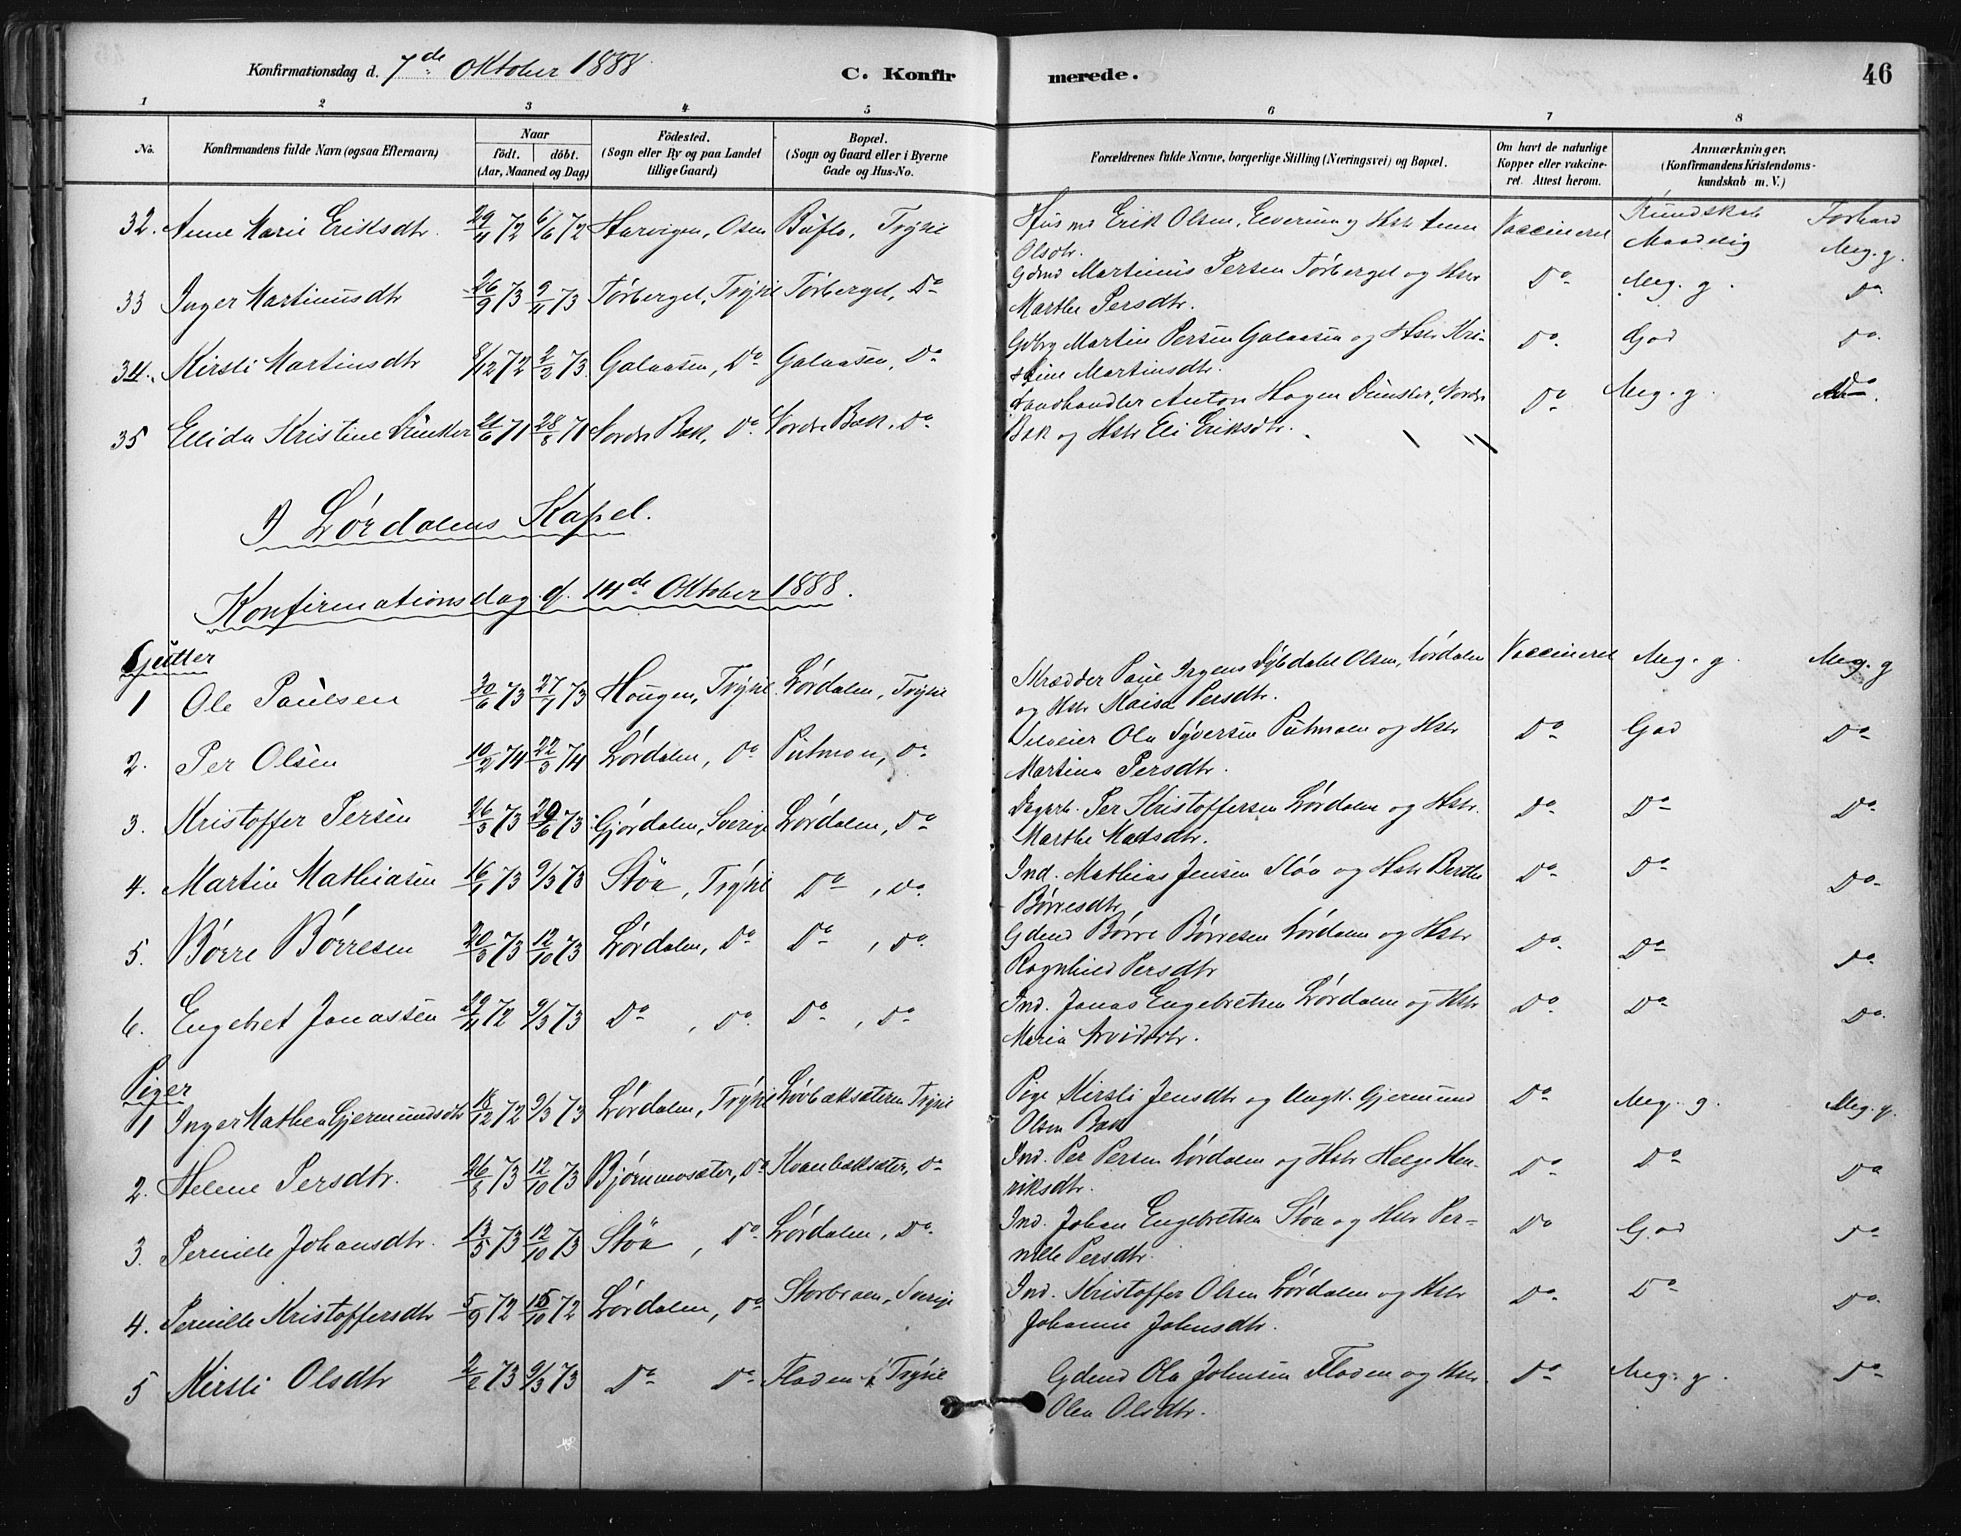 Konfirmationsdag d. 7de Oktober 1888. C. Konfirmerede. 46
1 2 3 4 5 6 7 8
No. Konfirmandens fulde Navn (ogsaa Efternavn) Naar födt. döbt. (Aar, Maaned og Dag) Födested. (Sogn eller By og paa Landet tillige Gaard) Bopæl. (Sogn og Gaard eller i Byerne Gade og Hus-No. Forældrenes fulde Navne, borgerlige Stilling (Næringsvei) og Bopæl. Om havt de naturlige Kopper eller vakcineret. Attest herom. Anmærkninger. (Konfirmandens Kristendomskundskab m. V.)
32. Anne Marie Eriksdtr. 29/4 72 6/6 72 Osen Trysil Husmd Erik Olsen, Elverum og Hstr Anne Vaccineret Kundskab Forhold
Olsdtr. Maadelig Meg. g.
33 Inger Martinusdtr 26/9 73 9/11 73 Törberget, Trysil Törberget, Do Gdmd Martinus Persen Törberget og Hstr Do Meg. g. Do
Marthe Persdtr.
34. Kirsti Martinsdtr 8/12 72 2/2 73 Galaasen, Do Galaasen, Do Gdbrg Martin Persen Galaasen og Hstr Kri- Do. God Do.
stine Martinsdtr.
35 Ellida Kristine Dunker 21/6 71 28/8 71 Nordre Bak, Do Nordre Bak, Do Landhandler Anton Hagen Dunker, Nordre Do Meg. g. Do.
Bak og Hstr Eli Eriksdtr.
I Lördalens Kapel.
Konfirmationsdag d. 14de Oktober 1888.
Gutter
1 Ole Paulsen 30/6 73 27/7 73 Hougen, Trysil Lördalen, Trysil Skrædder Paul Irgens Dybdahl Olsen, Lördalen Vaccineret Meg. g. Meg. g
og Hstr Maisa Persdtr.
2. Per Olsen 10/2 74 22/3 74 Lördalen, Do Putmoen, Do Selveier Ola Syversen Putmoen og Hstr Do God Do
Martina Persdtr.
3. Kristoffer Persen 26/3 73 29/6 73 Gjördalen, Sverige Lördalen, Do Dagarb. Per Kristoffersen Lördalen og Hstr. Do Do Do.
Marthe Matsdtr.
4. Martin Mathiasen 16/1 73 9/3 73 Stöa, Trysil Do, Do. Ind. Mathias Jensen Stöa og Hstr Berthe Do. Do Do.
Börresdtr
5. Börre Börresen 20/8 73 12/10 73 Lördalen, Do Do, Do. Gdmd Börre Börresen Lördalen og Hstr Do. Do Do.
Ragnhild Persdtr
6. Engebret Jonassen 29/11 72 9/3 73 Do, Do. Do, Do Ind. Jonas Engebretsen Lördalen og Hstr Do. Do Do.
Maria Arvidsdtr.
Piger
1 Inger Mathea Gjermundsdtr 18/12 72 9/3 73 Lördalen, Trysil Lövbæksæteren Trysil Pige Kirsti Jensdtr og Ungk. Gjermund Do Meg. g. Meg. g.
Olsen Bak
2. Helene Persdtr. 26/8 73 12/10 73 Björnmosæter, Do Kvænbæksæter, Do Ind. Per Persen Lördalen og Hstr Helge Hen- Do Do Do
riksdtr.
3 Pernille Johansdtr. 13/5 73 12/10 73 Stöa, Do Lördalen, Do. Ind. Johan Engebretsen Stöa og Hstr Per- Do God Do
nille Persdtr.
4. Pernille Kristoffersdtr 5/9 72 15/10 72 Lördalen, Do Storbroen, Sverige Ind. Kristoffer Olsen Lördalen og Hstr Do. Do Do.
Johanne Johnsdtr.
5 Kirsti Olsdtr 2/2 73 9/3 73 Do Do Floden i Trysil Gdmd Ola Johnsen Floden og Hstr. Do Meg. g. Do
Olea Olsdtr.